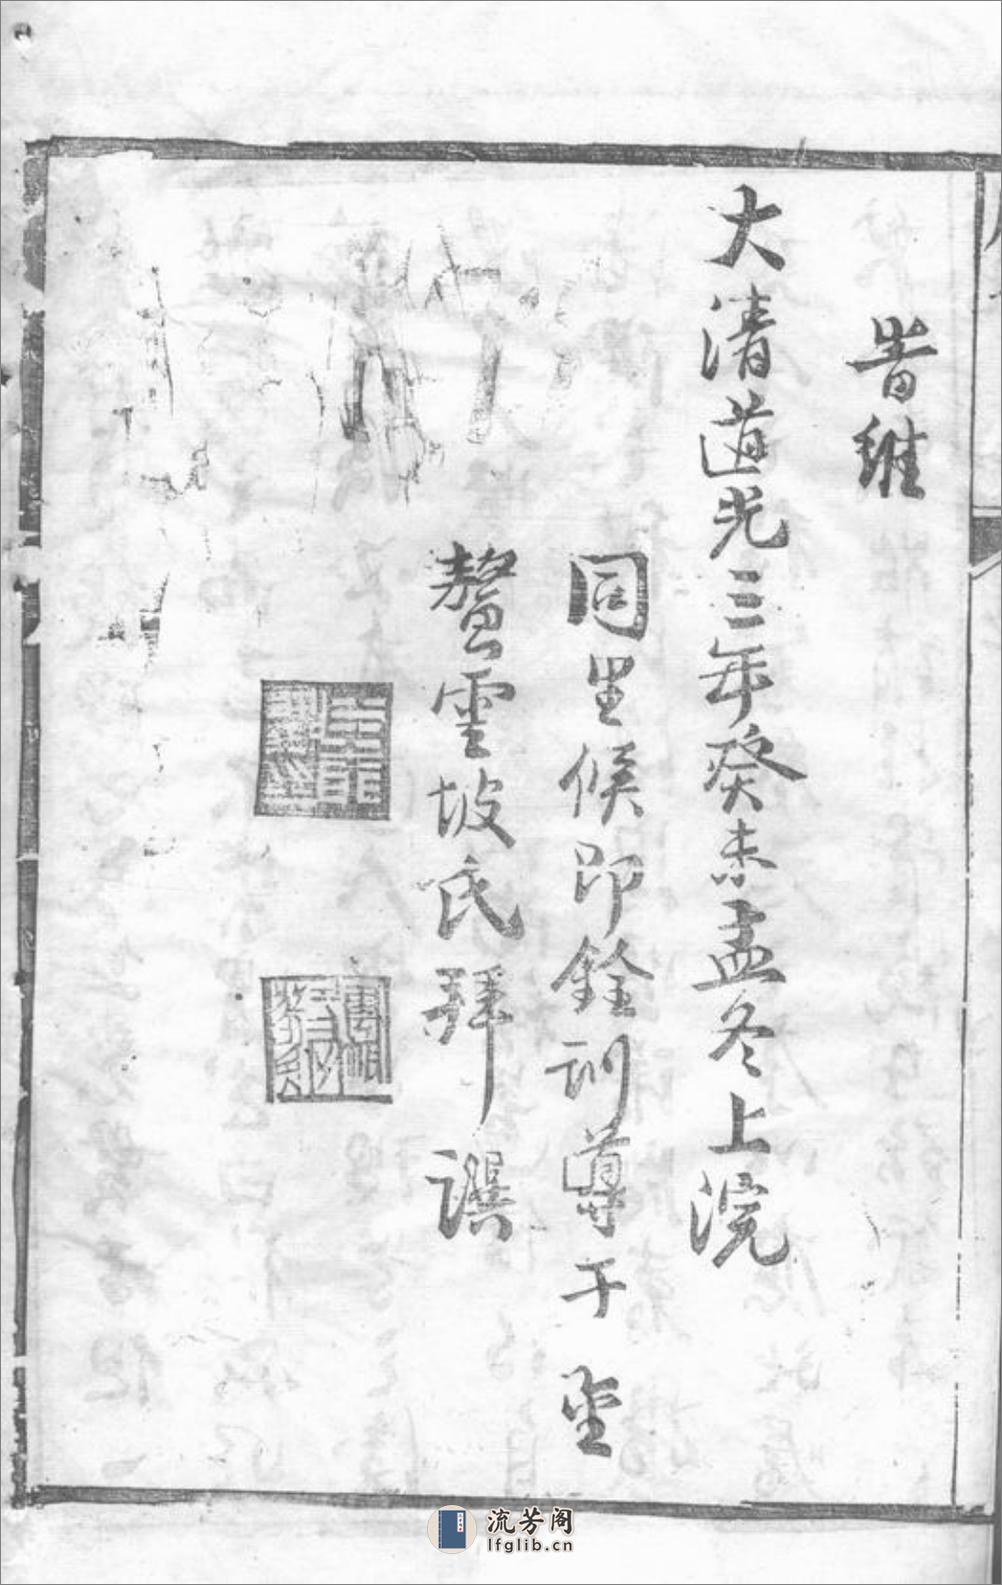 旹維
大清道光三年癸未孟冬上浣
同里候即銓訓導干 堊
鰲雲坡氏拜譔
流芳阁
lfglib.cn